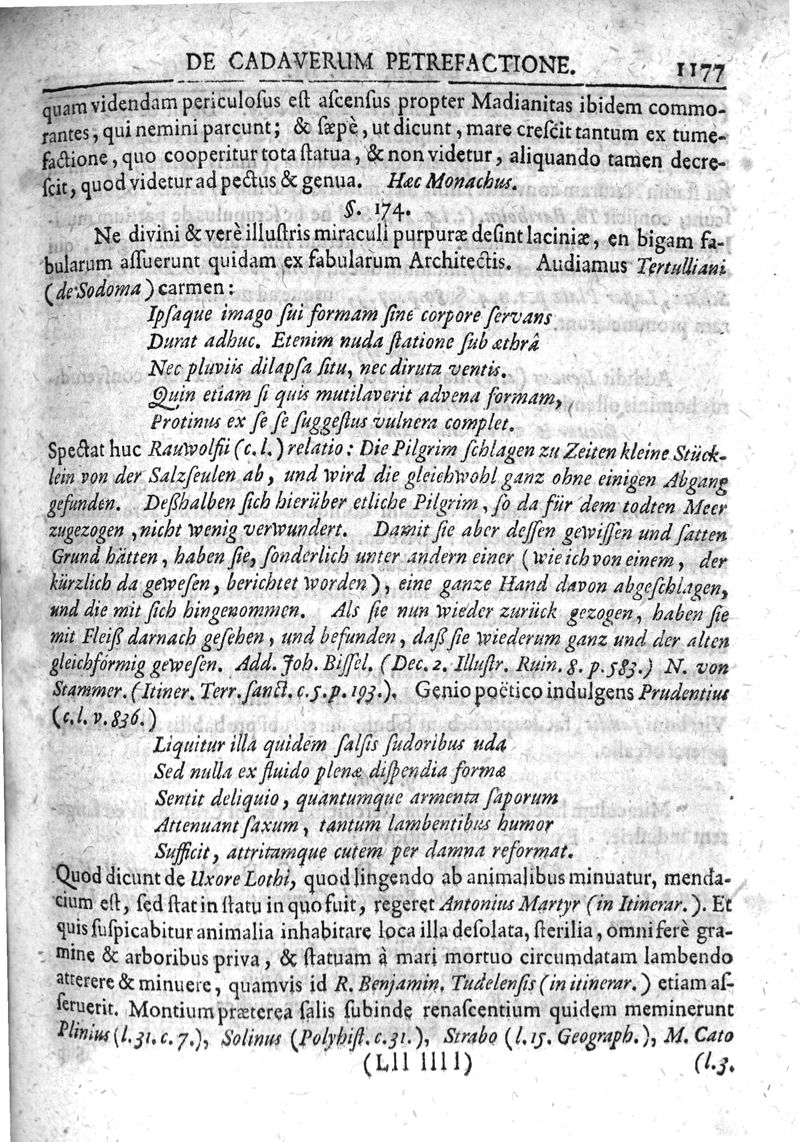 DE CADAVERUM PETREFACTIONE. 1177
quam videndam periculosus est ascensus propter Madianitas ibidem commo-
rantes, qui nemini parcunt; & sæpè, ut dicunt, mare crescit tantum ex tume-
factione, quo cooperitur tota statua, & non videtur, aliquando tamen decre-
scit, quod videtur ad pectus & genua. Hæc Monachus.
§. 174.
Ne divini & verè illustris miraculi purpuræ desint laciniæ, en bigam fa-
bularum assuerunt quidam ex fabularum Architectis. Audiamus Tertulliani
(de Sodoma) carmen:
Ipsaque imago sui formam sine corpore servans
Durat adhuc. Etenim nuda statione sub æthrâ
Nec pluviis dilapsa situ, nec diruta ventis.
Quin etiam si quis mutilaverit advena formam,
Protinus ex se se suggestus vulnera complet.
Spectat huc Rauwolfii (c. l.) relatio: Die Pilgrim schlagen zu Zeiten kleine Stück-
lein von der Salzseulen ab, und wird die gleichwohl ganz ohne einigen Abgang
gefunden. Deßhalben sich hierüber etliche Pilgrim, so da für dem todten Meer
zugezogen, nicht wenig verwundert. Damit sie aber dessen gewissen und satten
Grund hätten, haben sie, sonderlich unter andern einer (wie ich von einem, der
kürzlich da gewesen, berichtet worden), eine ganze Hand davon abgeschlagen,
und die mit sich hingenommen. Als sie nun wieder zurück gezogen, haben sie
mit Fleiß darnach gesehen, und befunden, daß sie wiederum ganz und der alten
gleichförmig gewesen. Add. Joh. Bissel. (Dec. 2. Illustr. Ruin. 8. p. 583.) N. von
Stammer. (Itiner. Terr. sanct. c. 5. p. 193.). Genio poëtico indulgens Prudentius
(c. l. v. 836.)
Liquitur illa quidem salsis sudoribus uda
Sed nulla ex fluido plenæ dispendia formæ
Sentit deliquio, quantumque armenta saporum
Attenuant saxum, tantum lambentibus humor
Sufficit, attritamque cutem per damna reformat.
Quod dicunt de Uxore Lothi, quod lingendo ab animalibus minuatur, menda-
cium est, sed stat in statu in quo fuit, regeret Antonius Martyr (in Itinerar.). Et
quis suspicabitur animalia inhabitare loca illa desolata, sterilia, omni ferè gra-
mine & arboribus priva, & statuam à mari mortuo circumdatam lambendo
atterere & minuere, quamvis id R. Benjamin. Tudelensis (in itinerar.) etiam as-
seruerit. Montium præterea salis subinde renascentium quidem meminerunt
Plinius (l. 31. c. 7.), Solinus (Polyhist. c. 31.), Strabo (l. 15. Geograph.), M. Cato
(Lll llll) (l. 3.